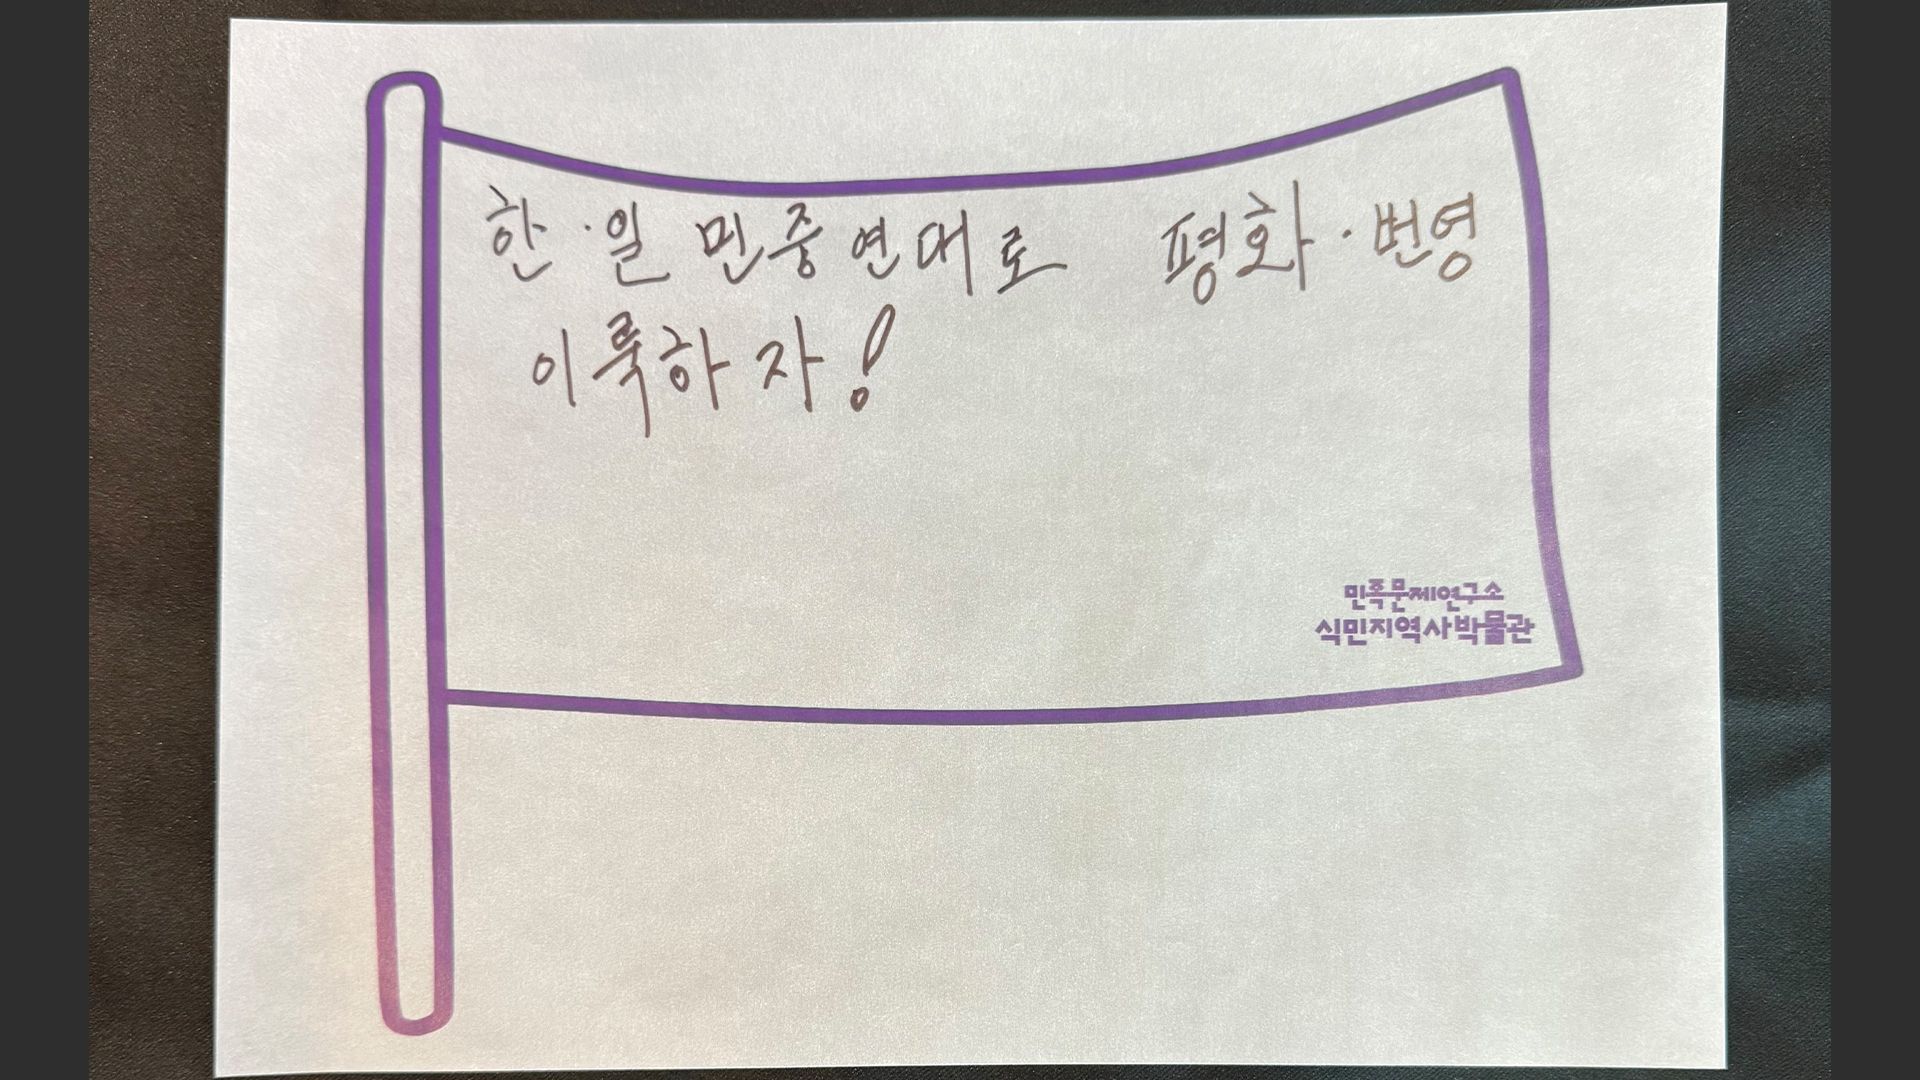 한·일 민중연대로 평화·번영
이룩하자!
민족문제연구소
식민지역사박물관